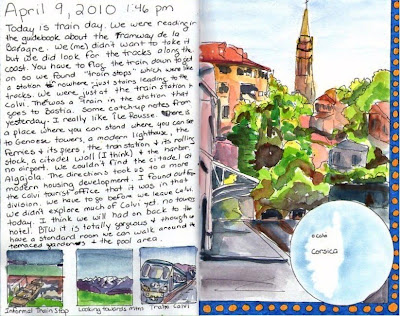 April 9, 2010 1:46 pm
Today is train day. We were reading in
the guidebook about the Tramway de la
Balagne. We (me) didn't want to take it
but we did look for the tracks along the
coast. You have to flag the train down to get
on so we found "train stops" which were like
a station to nowhere - just stairs leading to the
tracks. We were just at the train station in
Calvi. There was a train in the station that
goes to Bastia. Some catch-up notes from
yesterday. I really like Ile Rousse. There is
a place where you can stand where you can see
to Genoese towers, a modern lighthouse, the
ferries & its piers, the train station & its rolling
stock, a citadel wall (I think) & the harbor.
no airport. We couldn't find the citadel at
Algajola. The directions took us to a more
modern housing development. I found out from
the Calvi tourist office that it was in that
division. We have to go before we leave Calvi.
We didn't explore much of Calvi yet. no towers
today. I think we will head on back to the
hotel. BTW it is totally gorgeous & enough to
have a standard room we can walk around the
terraced gardens & the pool area.
Informal Train Stop
Looking towards mtns
Train Calvi
Calvi
Corsica